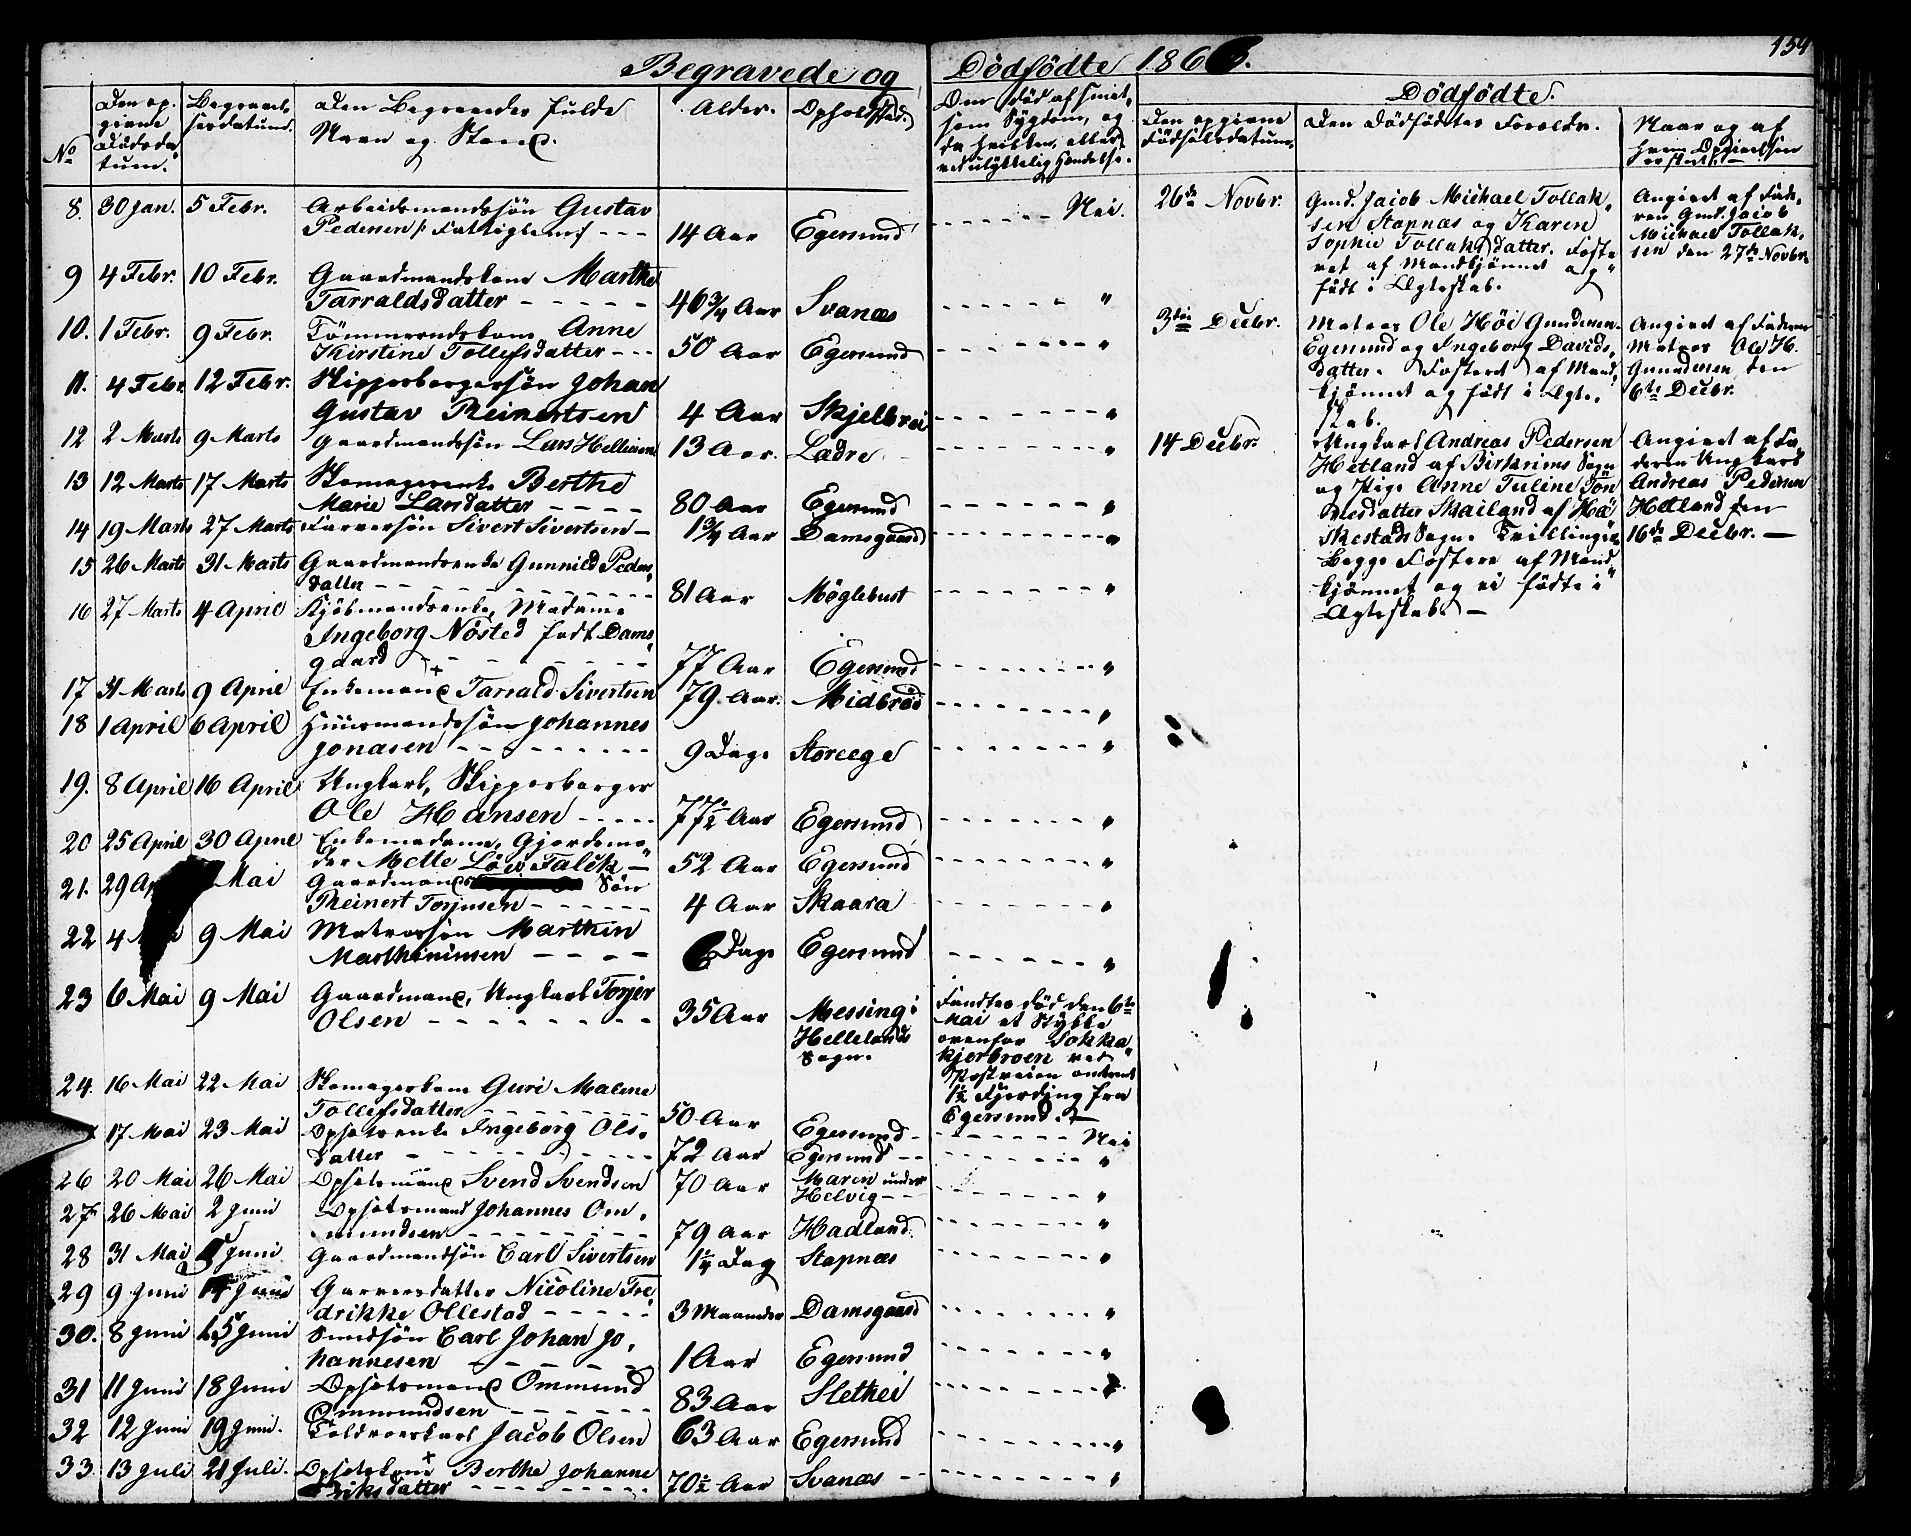 Begravede og Dødfødte 1866.
154
No
Den op-
givne
Dødsda-
tum.
Begravel-
sesdatum.
Den Begravedes fulde
Navn og Stand.
Alder.
Opholdsted.
Om død af smit-
som Sygdom, og
da hvilken, eller
ved ulykkelig Hændelse.
Dødfødte.
Den opgivne
Fødselsdatum.
Den Dødfødtes Forældre.
Naar og af
hvem Opgivelsen
er skeet.
8. 30 Jan. 5 Febr. Arbeidsmandssøn Gustav
Pedersen /: Fattiglem :/ 14 Aar Egersund Nei.
9 4 Febr. 10 Febr. Gaardmandskone Marthe
Tarraldsdatter 46 3/4 Aar Svanæs "
10. 1 Febr. 9 Febr. Tømmermandskone Anne
Kirstine Tollefsdatter 50 Aar Egersund "
11. 4 Febr. 12 Febr. Skipperborgersøn Johan
Gustav Reinertsen 4 Aar Skjelbrei "
12 2 Marts 9 Marts Gaardmandssøn Lars Hellesen 13 Aar. Lædre "
13 12 Marts 17 Marts Skomagerenke Berthe
Marie Larsdatter 80 Aar Egersund "
14 19 Marts 27 Marts Farversøn Sivert Sivertsen 1 3/4 Aar Damsgaard "
15 26 Marts 31 Marts Gaardmandsenke Gunnild Peders-
datter 81 Aar Møglebust "
16 27 Marts 4 April Kjøbmandsenke, Madame
Ingeborg Nøsted født Dams-
gaard 77 Aar Egersund "
17 31 Marts 9 April Enkemand Tarrald Sivertsen 79 Aar. Midbrød "
18 1 April 6 April Huusmandssøn Johannes
Jonasen 9 Dage Storeege "
19. 8 April 16 April Ungkarl, Skipperborger
Ole Hansen 77 1/2 Aar Egersund "
20 25 April 30 April Enkemadame, Gjordemo-
der Mette Løv Falck 52 Aar Egersund "
21. 29 Mai Gaardmands Søn
Reinert Torjusen 4 Aar Skaara "
22 4 9 Mai Matrossøn Marthin
Marthiniusen 6 Dage Egersund "
23 6 Mai 9 Mai Gaardmand, Ungkarl Torjer
Olsen 35 Aar Messing i
Hellelands
Sogn.
Fandtes død den 6te
Mai et Stykke
ovenfor Sokka-
kjerbroen ved
Postveien omtrent
1 1/2 Fjerding fra
Egersund.
24. 16 Mai 22 Mai Skomagerkone Guri Malene
Tollefsdatter 50 Aar Egersund Nei
17 Mai 23 Mai Opsidderenke Ingeborg Ols-
datter 72 Aar Egersund "
26 20 Mai 26 Mai Opsidsmand Svend Svendsen 70 Aar Maren under
Helvig "
27 26 Mai 2 Juni Opsidsmand Johannes Om-
mundsen 79 Aar Hadland "
28 31 Mai Juni Gaardmandssøn Carl Sivertsen 1 1/4 Dag Stapnæs "
29 9 Juni 14 Juni Garversdatter Nicoline Fre-
drikke Ollestad 3 Maaneder Damsgaard "
30. 8 Juni 15 Juni Smedsøn Carl Johan Jo-
hannesen 1 Aar Egersund "
31 11 Juni 18 Juni Opsidsmand Ommund
Ommundsen 83 Aar Slethei "
32 12 Juni 19 Juni. Toldroerskarl Jacob Olsen 63 Aar Egersund "
33 13 Juli 21 Juli. Berthe Johanne
Eriksdatter 70 1/2 Aar Svanæs "
26de Novbr. Gmd. Jacob Michael Tollak-
sen Stapnæs og Karen
Sophie Tollaksdatter. Foste-
ret af Mandkjønnet og
født i Ægteskab.
Angivet af Fade-
ren Gmd. Jacob
Michael Tollak-
sen den 27de Novbr.
3die Decbr. Matros Ole Høi Gundersen
Egersund og Ingeborg Davids-
datter. Fosteret af Mand-
kjønnet og født i Ægte-
skab.
Angivet af Faderen
Matros Ole H.
Gundersen den
6te Decbr.
14 Decbr. Ungkarl Andreas Pedersen
Hetland af Birkrims Sogn
og Pige Anne Tuline Tøn-
nesdatter Skailand af Hæ-
skestads Sogn. Tvillinger
Begge Fostere af Mand-
kjønnet og ei fødte i
Ægteskab.
Angivet af Fa-
deren Ungkarl
Andreas Pedersen
Hetland den
16de Decbr.